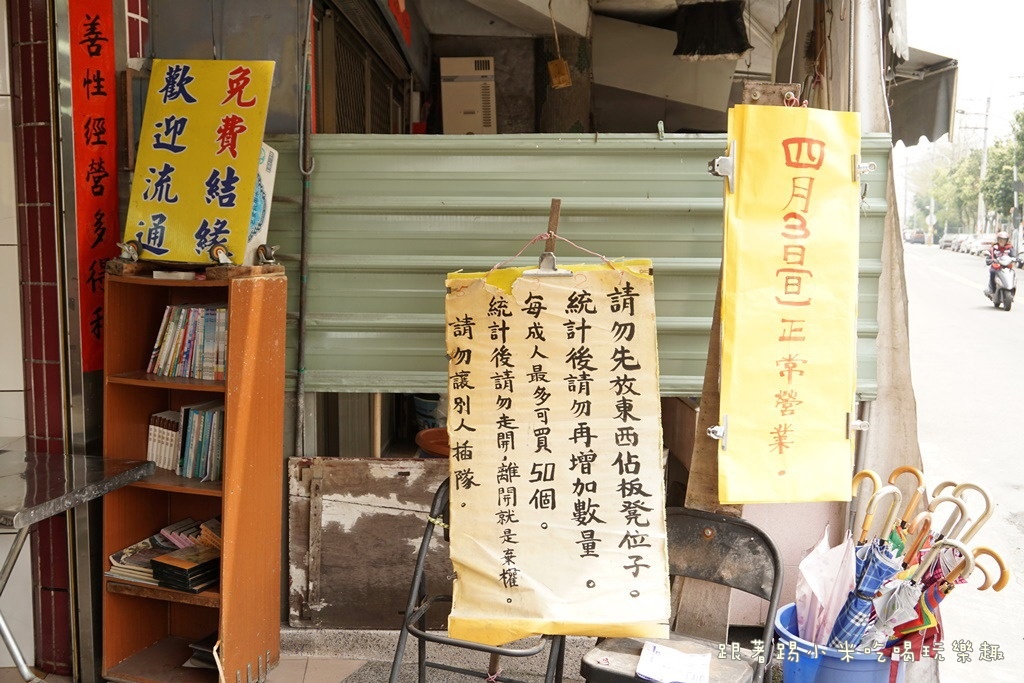 善性經營多得利
免費結緣
歡迎流通
請勿先放東西佔板凳位子。
統計後請勿再增加數量。
每成人最多可買50個。
統計後請勿走開,離開就是棄權。
請勿讓別人插隊。
四月3日(日)正常營業.
跟著踢小米吃喝玩樂趣